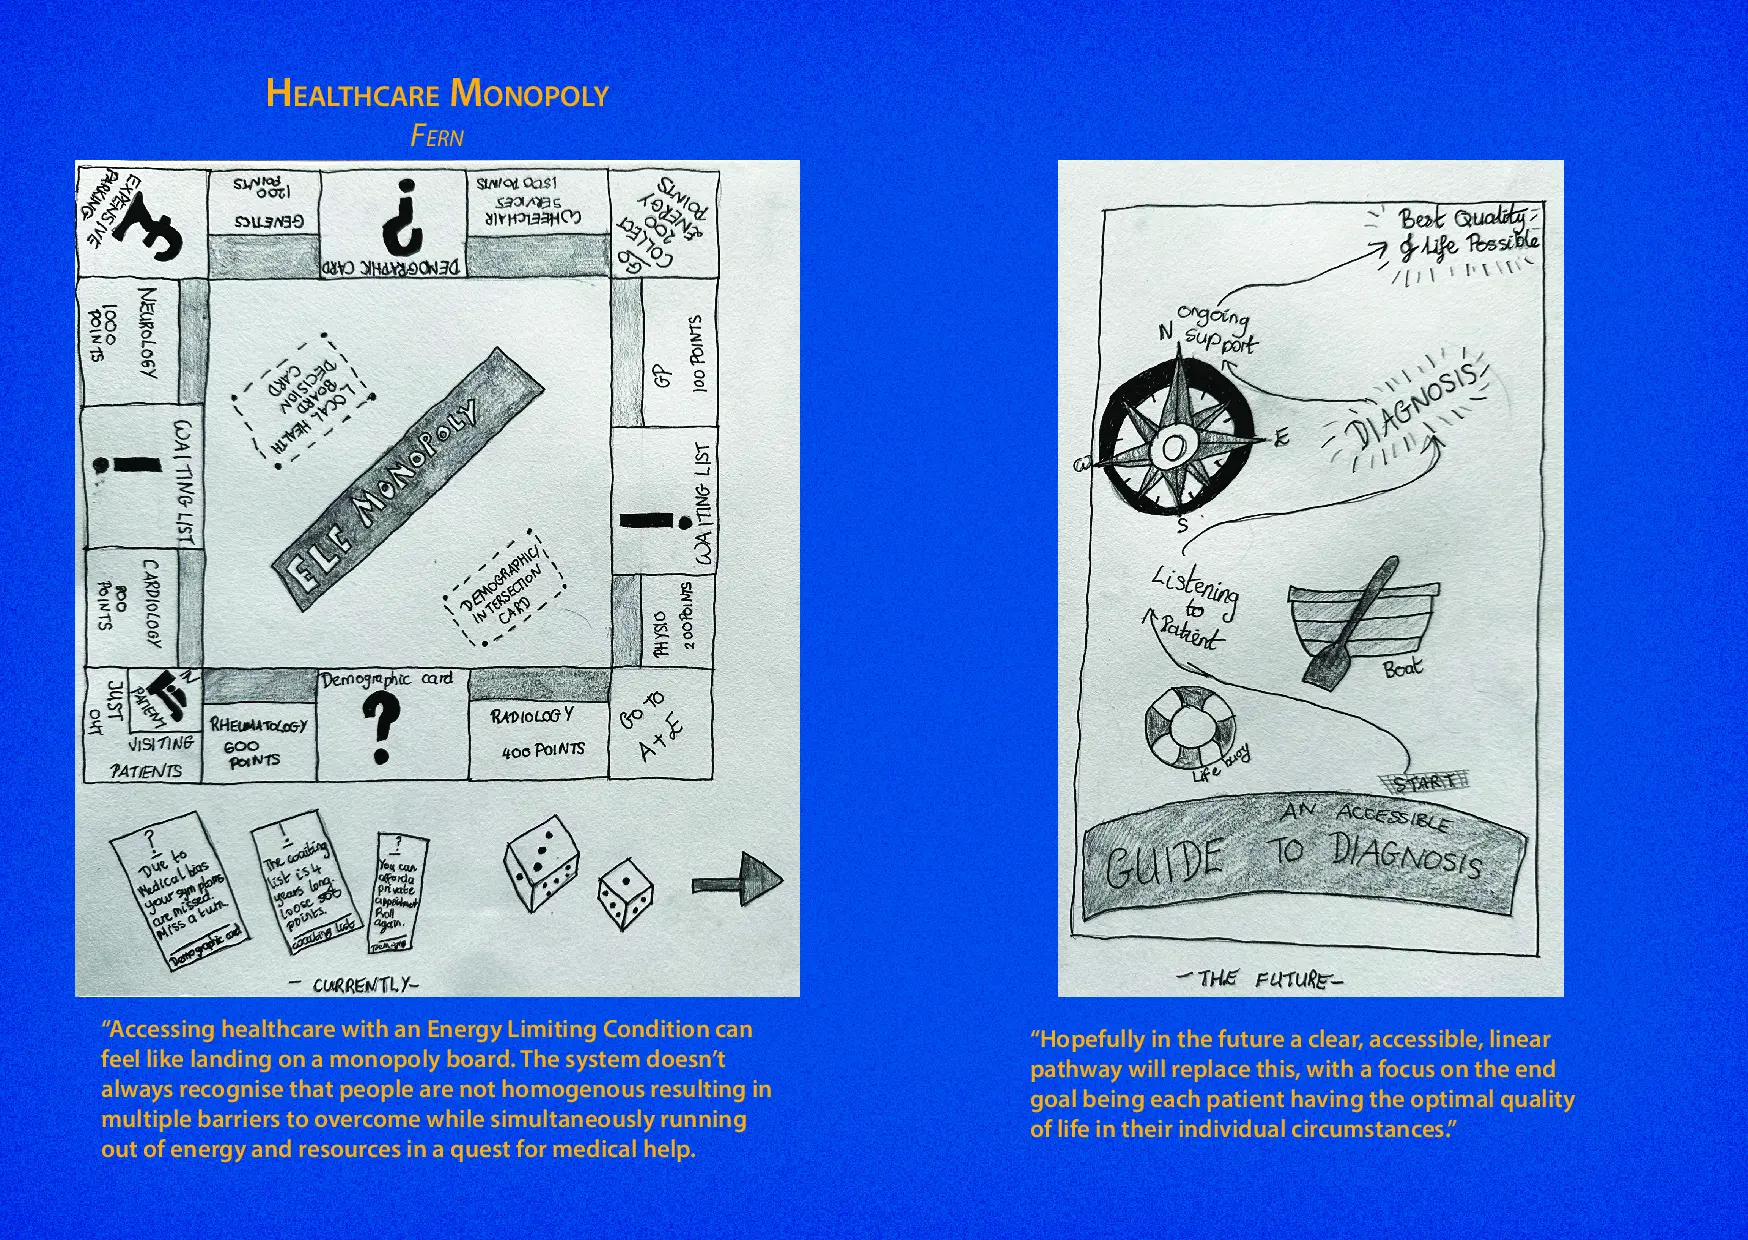 HEALTHCARE MONOPOLY
FERN
EXPENSIVE
PARKING
£
GENETICS
1200
POINTS
?
DEMOGRAPHIC CARD
WHEELCHAIR
SERVICES
1500 POINTS
COLLECT
200
ENERGY
POINTS
NEUROLOGY
1000
POINTS
WAITING LIST
!
CARDIOLOGY
800
POINTS
LOCAL HEALTH
BOARD
DECISION
CARD
ELC MONOPOLY
DEMOGRAPHIC/
INTERSECTION
CARD
GP
100 POINTS
WAITING LIST
!
PHYSIO
200 POINTS
JUST
IN
PATIENT
VISITING
PATIENTS
RHEUMATOLOGY
600
POINTS
Demographic card
?
RADIOLOGY
400 POINTS
GO TO
A+E
?
Due to
Medical bias
your symptoms
are missed.
Miss a turn
Demographic card
!
The waiting
list is 4
years long.
loose 500
points.
Waiting List
?
You can
afford a
private
appointment
Roll
again.
- CURRENTLY -
“Accessing healthcare with an Energy Limiting Condition can
feel like landing on a monopoly board. The system doesn’t
always recognise that people are not homogenous resulting in
multiple barriers to overcome while simultaneously running
out of energy and resources in a quest for medical help.
Best Quality
of Life Possible
ongoing
support
N
E
S
W
DIAGNOSIS
Listening
to
Patient
Boat
Life buoy
START
AN ACCESSIBLE
GUIDE TO DIAGNOSIS
- THE FUTURE -
“Hopefully in the future a clear, accessible, linear
pathway will replace this, with a focus on the end
goal being each patient having the optimal quality
of life in their individual circumstances.”